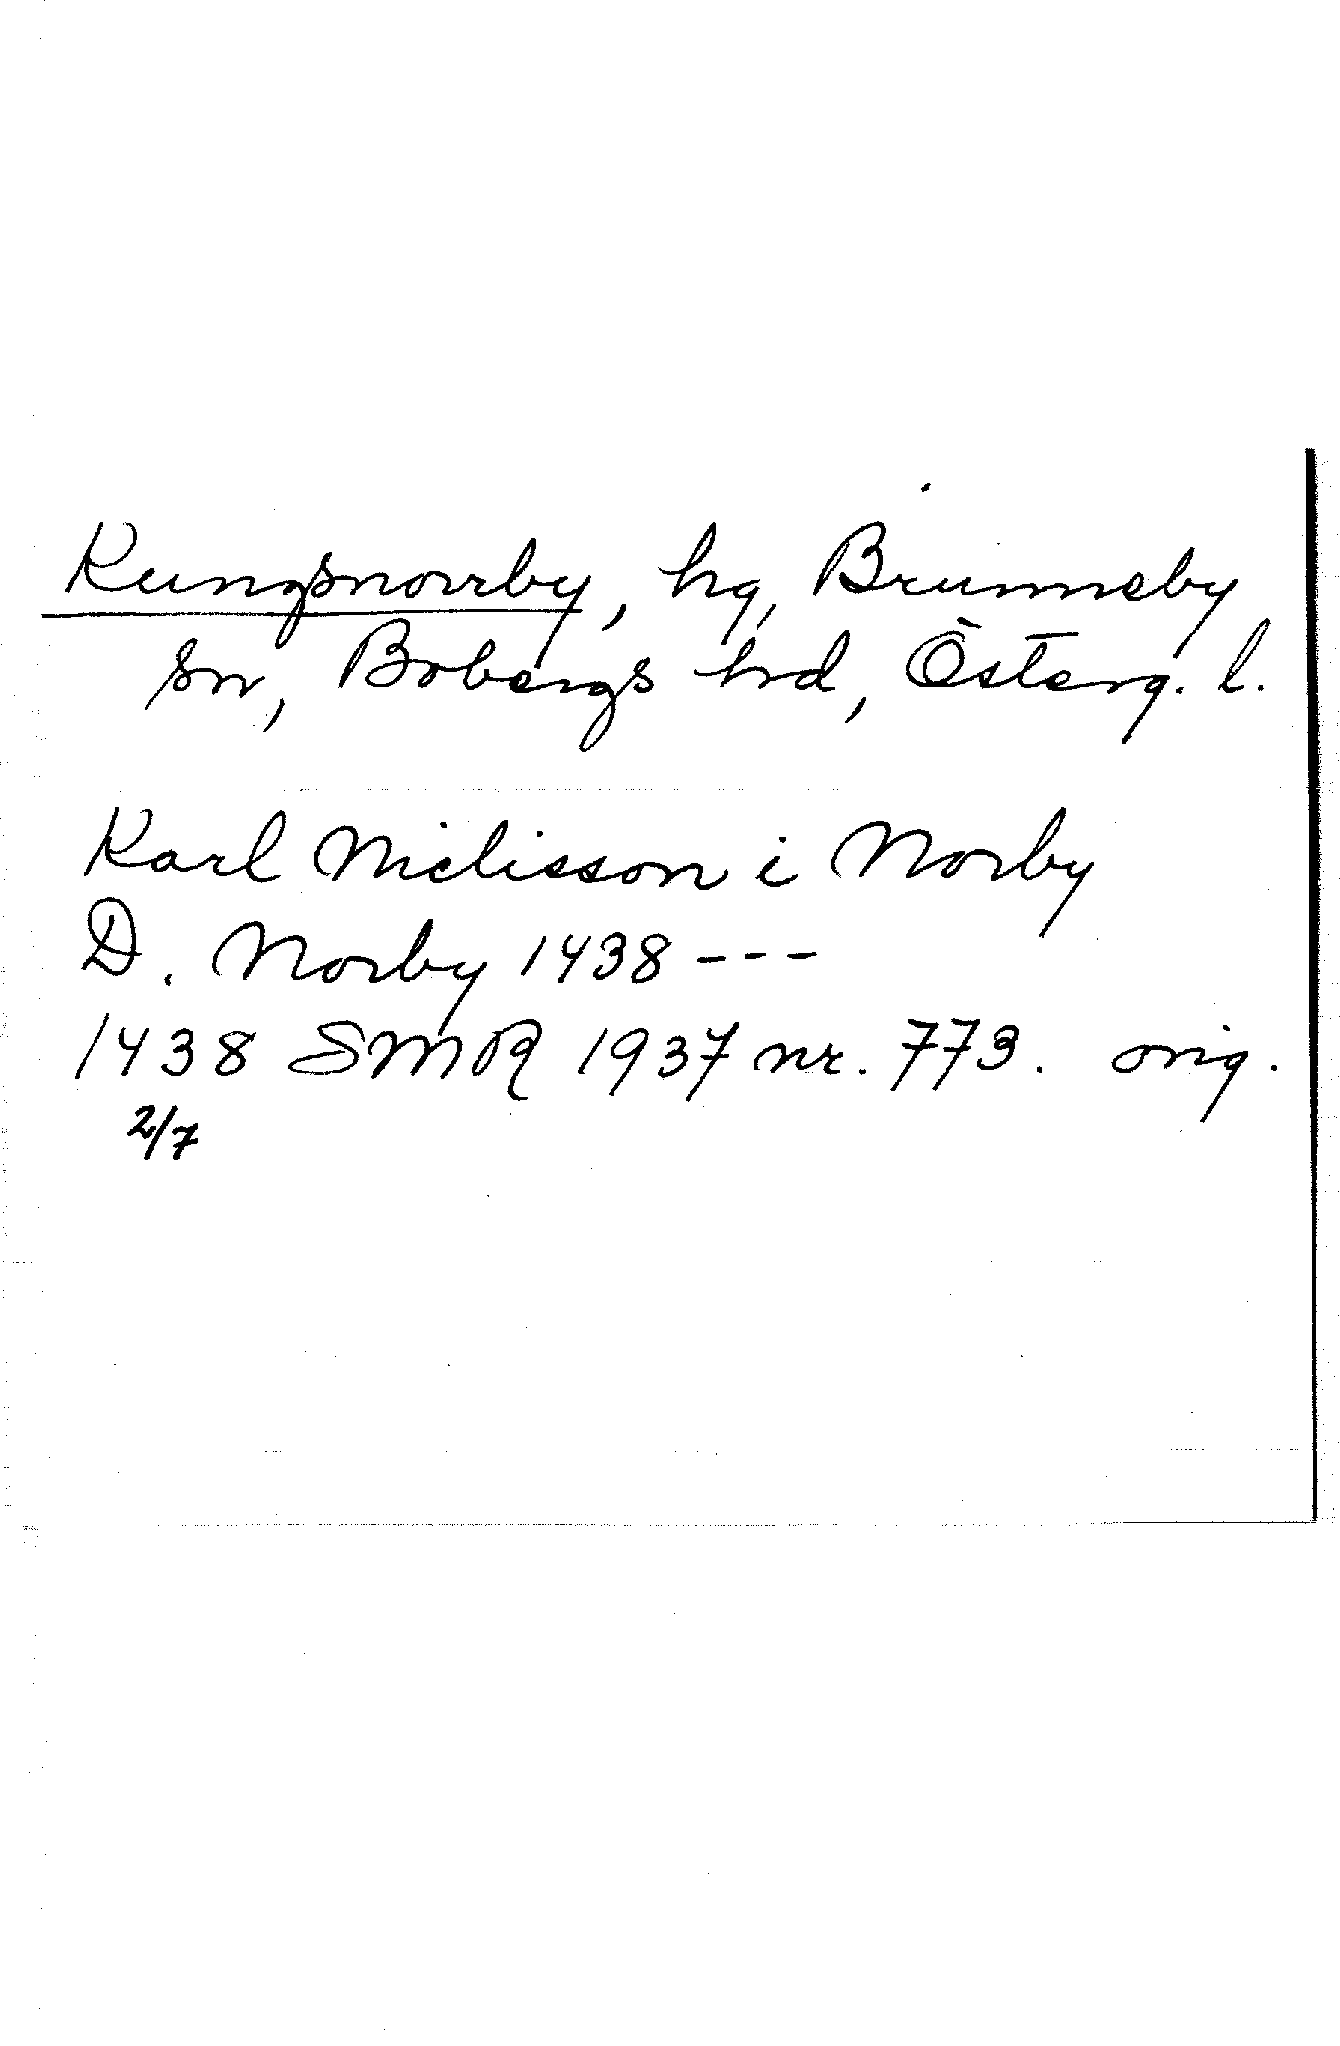 Kungsnorrby, hg, Brunneby
sn, Bobergs hd, Österg. l.
Karl Niclisson i Norby
D. Norby 1438 - - -
1438 SMR 1937 nr. 773. orig.
2/7